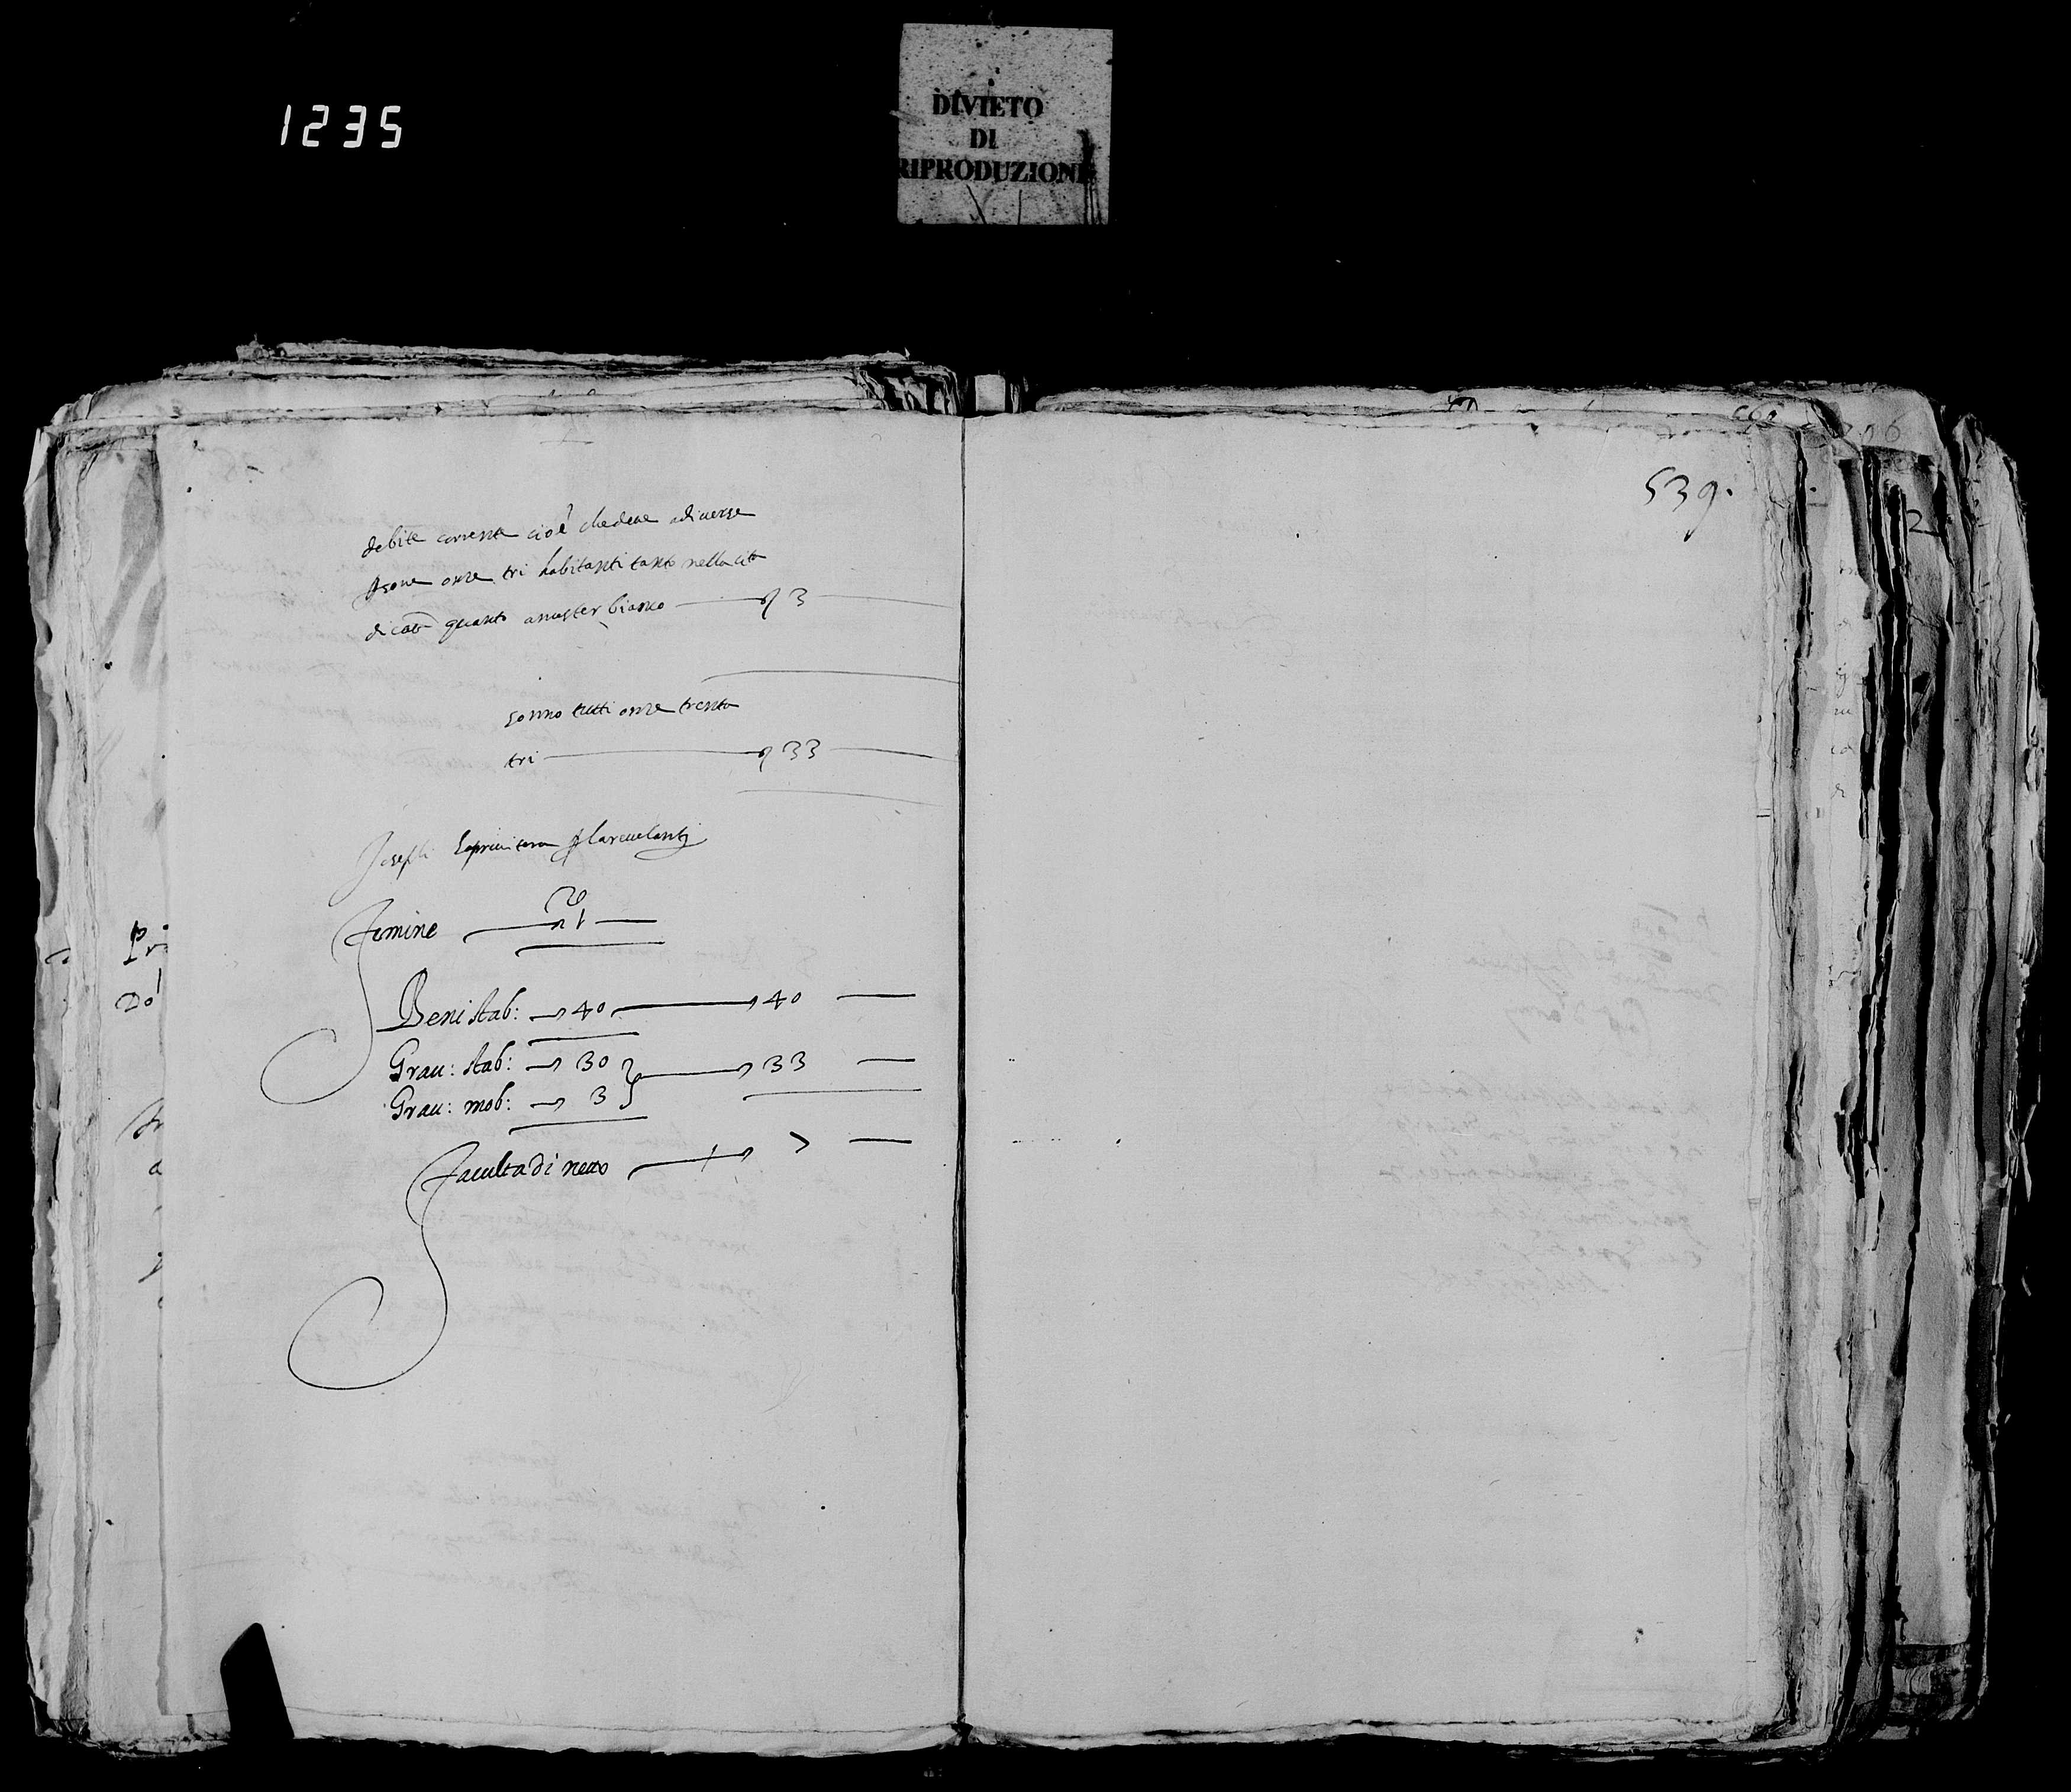 1235
DIVIETO
DI
RIPRODUZIONE
539.
debite corrente cioè che deve a diverse
psone onze tri habitanti tanto nella cita
di cata quanto a mister bianco 3
sonno tutti onze trenta
tri 33
Joseph
Femine 1
Beni stab: 40 40
Grav: stab: 30 33
Grav: mob: 3
Faculta di netto 7